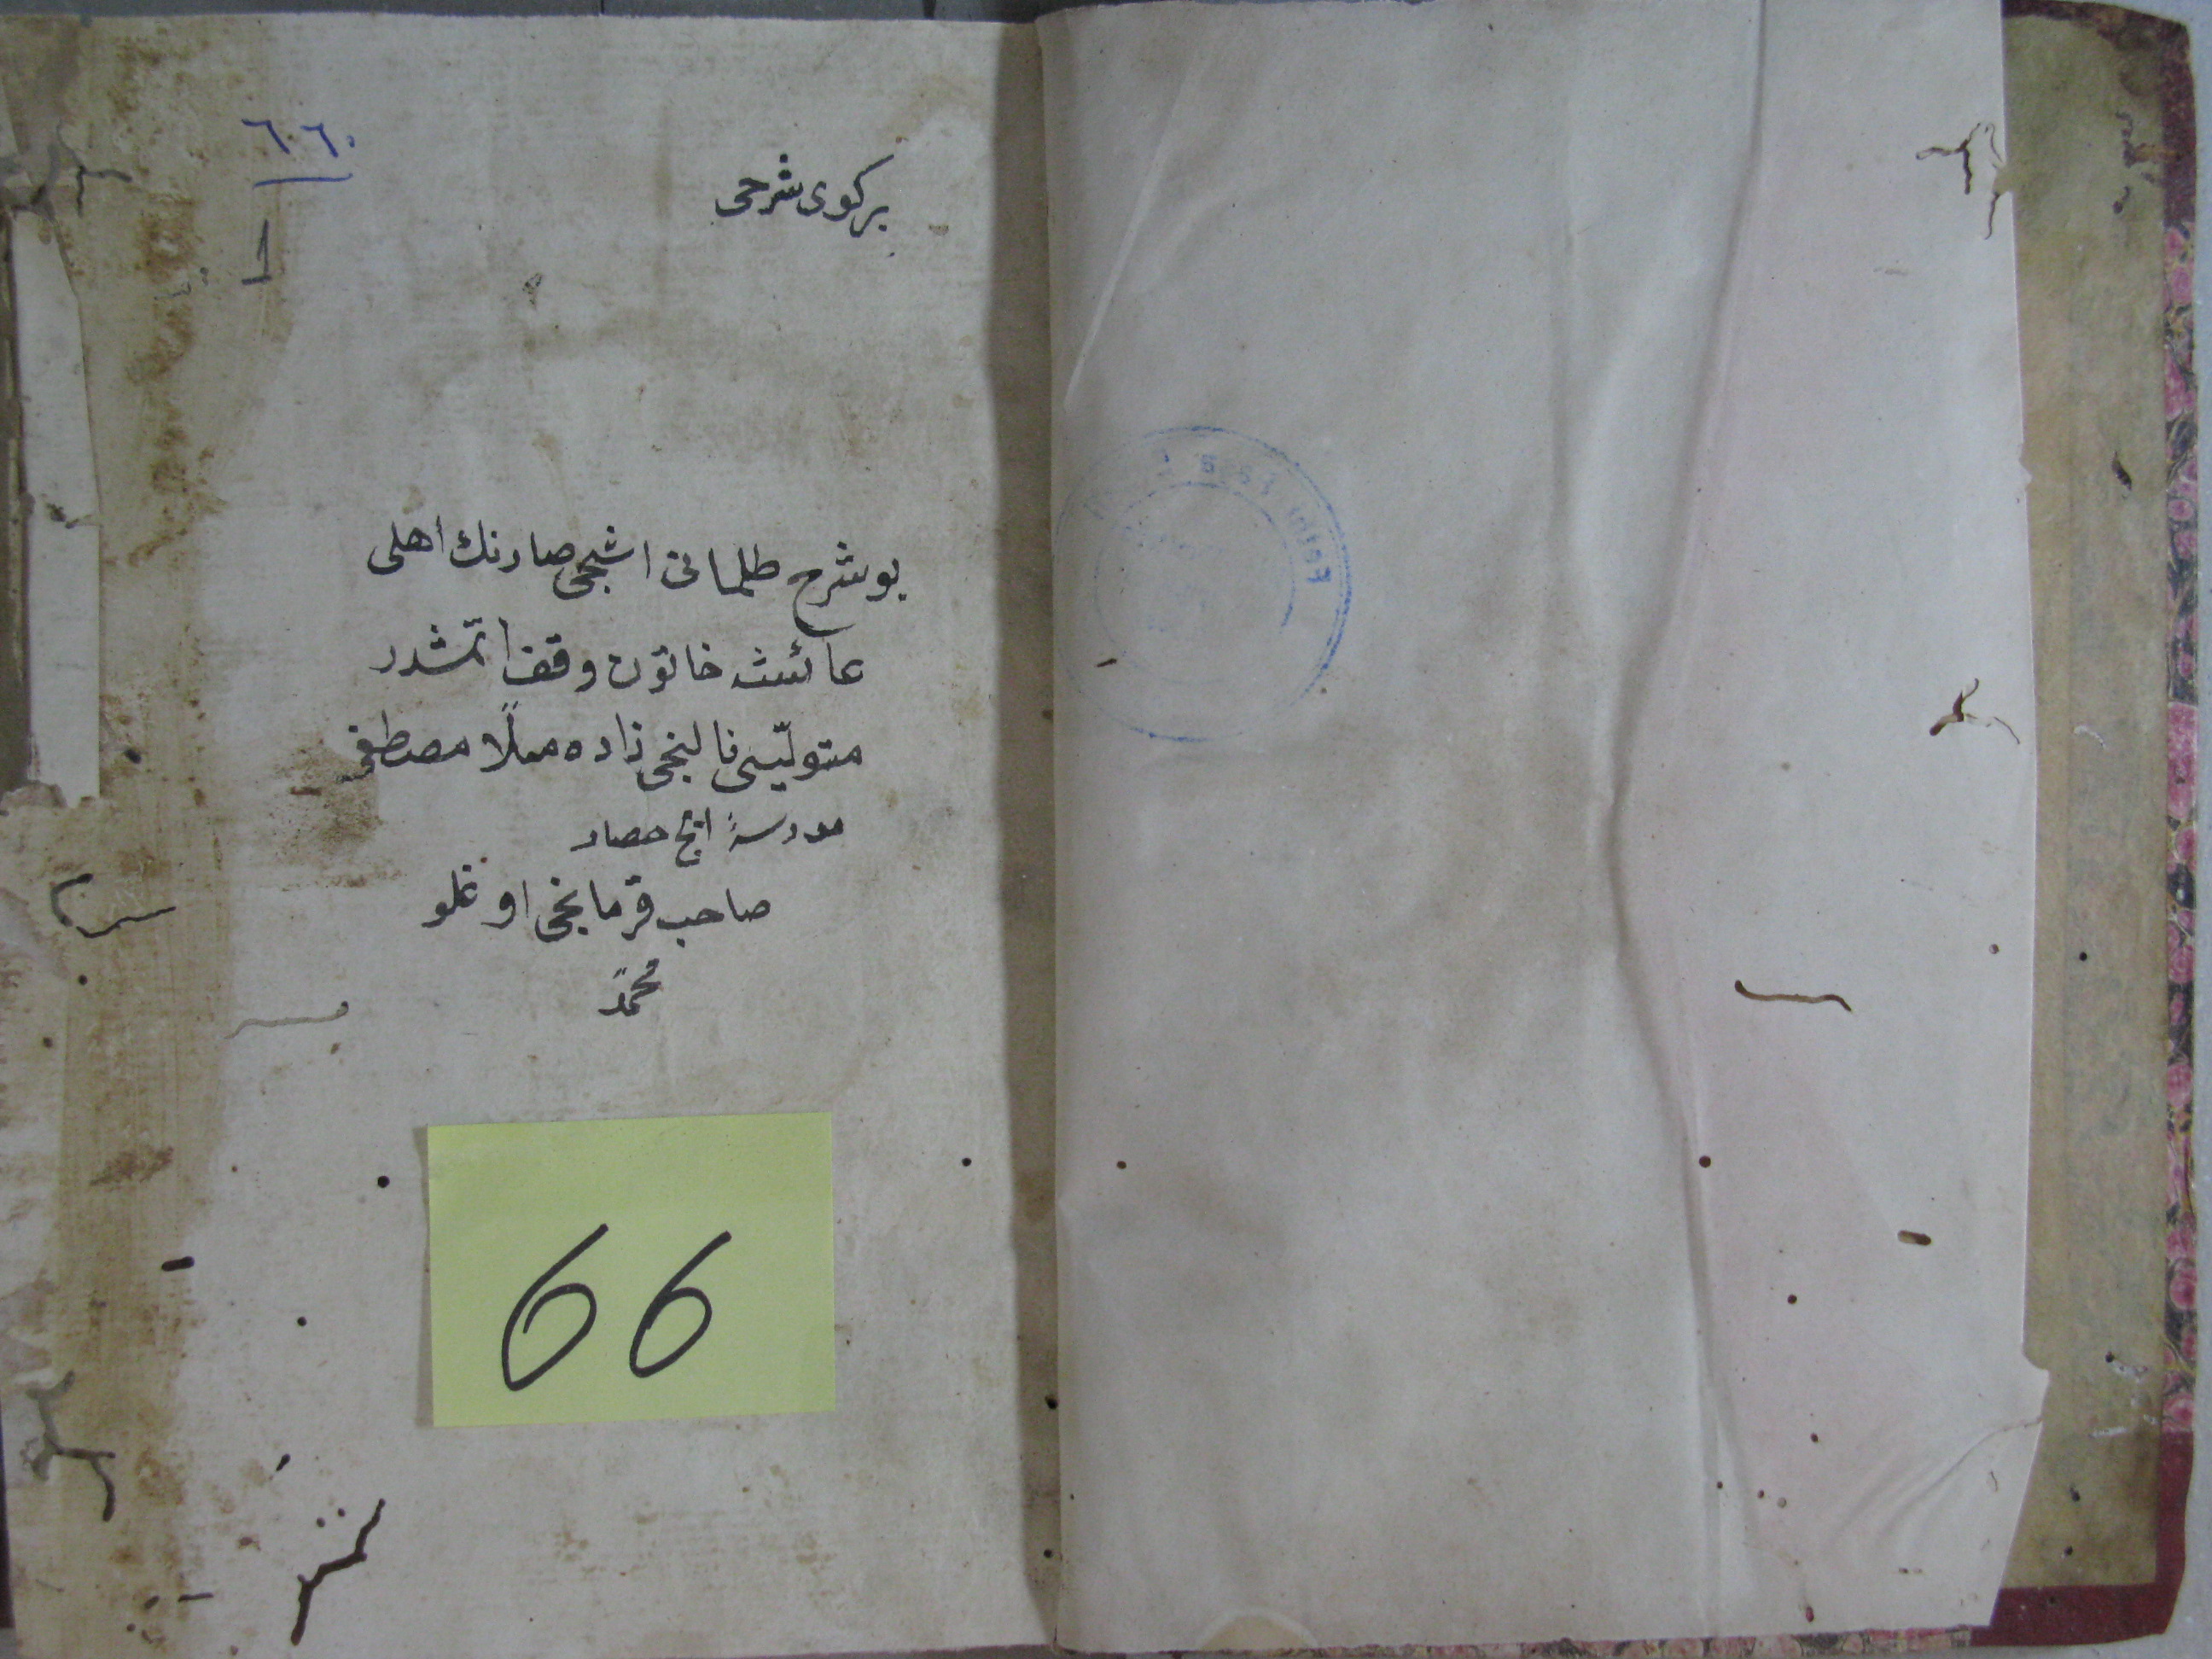 ٦٠٦٠
1
بركوى شرحى
بو شرح طلمانى اشجى صارنك اهلى
عائشه خاتون وقف اتمشدر
متوليسى نالبنجى زاده مــلا مصطفى
مدرسهٔ ايچ حصار
صاحب قرمانجى اوغلو
محمد
66